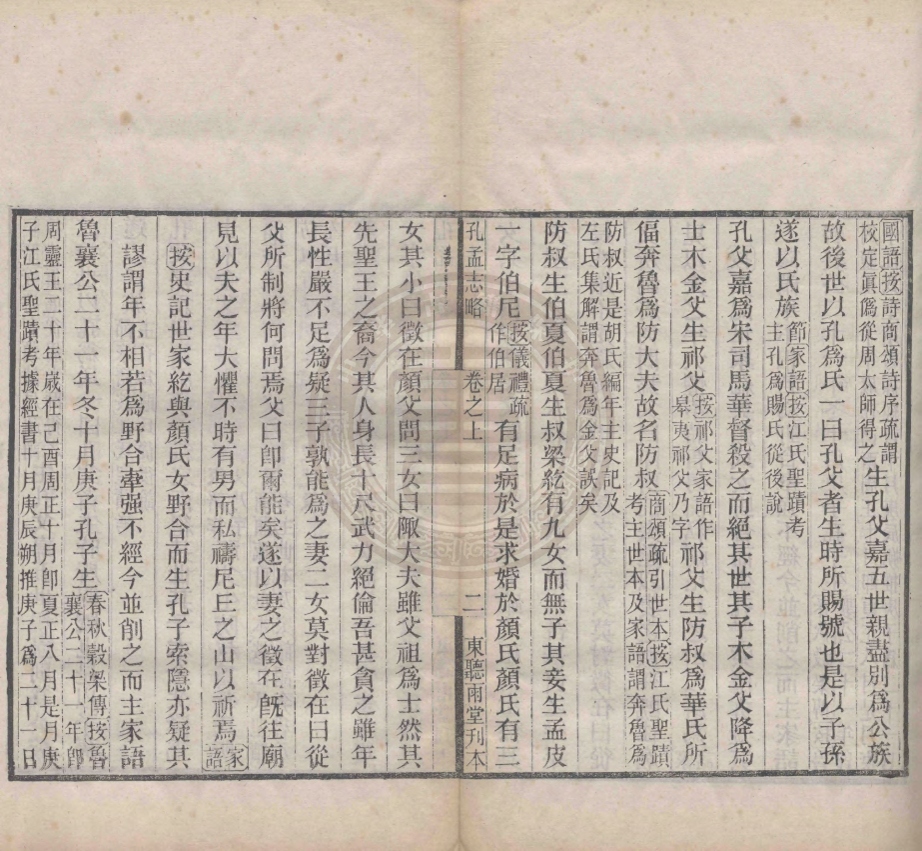 國語按詩商頌詩序疏謂校定眞僞從周太師得之生孔父嘉五世親盡別爲公族
故後世以孔爲氏一曰孔父者生時所賜號也是以子孫
遂以氏族節家語按江氏聖蹟考主孔爲賜氏從後說
孔父嘉爲宋司馬華督殺之而絕其世其子木金父降爲
士木金父生祁父按祁父家語作皋夷祁父乃字祁父生防叔爲華氏所
偪奔魯爲防大夫故名防叔商頌疏引世本按江氏聖蹟考主世本及家語謂奔魯爲
防叔近是胡氏編年主史記及左氏集解謂奔魯爲金父誤矣
防叔生伯夏伯夏生叔梁紇有九女而無子其妾生孟皮
一字伯尼按儀禮疏作伯居有足病於是求婚於顏氏顏氏有三
孔孟志略
卷之上
二
東聽雨堂刊本
女其小曰徵在顏父問三女曰陬大夫雖父祖爲士然其
先聖王之裔今其人身長十尺武力絕倫吾甚貪之雖年
長性嚴不足爲疑三子孰能爲之妻二女莫對徵在曰從
父所制將何問焉父曰卽爾能矣遂以妻之徵在旣往廟
見以夫之年大懼不時有男而私禱尼丘之山以祈焉家語
按史記世家紇與顏氏女野合而生孔子索隱亦疑其
謬謂年不相若爲野合牽强不經今並削之而主家語
魯襄公二十一年冬十月庚子孔子生春秋穀梁傳按魯襄公二十一年卽
周靈王二十年歲在己酉周正十月卽夏正八月是月庚子江氏聖蹟考據經書十月庚辰朔推庚子爲二十一日